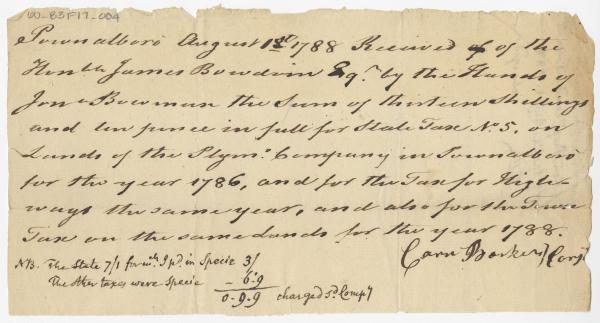 60-83F17-004
Pownalboro August 1st 1788 Received of of the
Honble James Bowdoin Esqr. by the Hands of
Jona Bowman the Sum of thirteen Shillings
and ten pence in full for State Tax No 5. on
Lands of the Plymo. Company in Pownalboro
for the year 1786, and for the Tax for High-
ways the same year, and also for the Town
Tax on the same Lands for the year 1788.
Carr Barker
NB. The State 7/1 for wch I pd. in Specie 3/
The other taxes were Specie - 6.9
0.9.9 charged sd. Compy